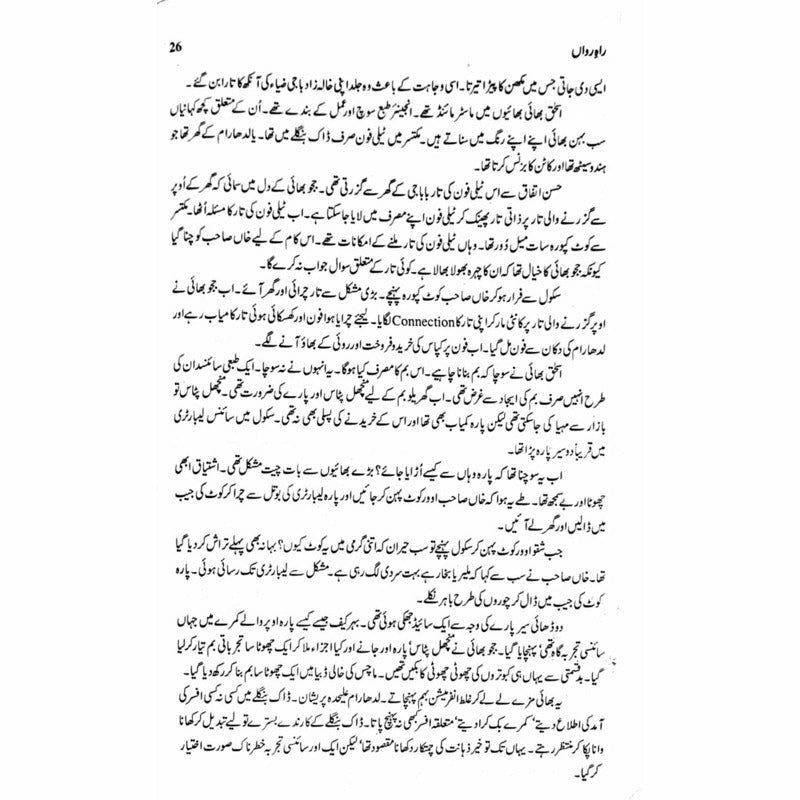 راہِ رواں
26
ایسی دی جاتی جس میں مکھن کا پیڑا تیرتا۔ اسی وجاہت کے باعث وہ جلد اپنی خالہ زاد باجی ضیاء کی آنکھ کا تارا بن گئے۔
اسحٰق بھائی بھائیوں میں ماسٹر مائنڈ تھے۔ انجینئر طبع سوچ اور عمل کے بندے تھے۔ اُن کے متعلق کچھ کہانیاں
سب بہن بھائی اپنے اپنے رنگ میں سناتے ہیں۔ مکتسر میں ٹیلی فون صرف ڈاک بنگلے میں تھا۔ یا لدھا رام کے گھر تھا جو
ہندو سیٹھ تھا اور کاٹن کا بزنس کرتا تھا۔
حسن اتفاق سے اس ٹیلی فون کی تار بابا جی کے گھر سے گزرتی تھی۔ ججو بھائی کے دل میں سمائی کہ گھر کے اُوپر
سے گزرنے والی تار پر ذاتی تار پھینک کر ٹیلی فون اپنے مصرف میں لایا جا سکتا ہے۔ اب ٹیلی فون کی تار کا مسئلہ اُٹھا۔ مکتسر
سے کوٹ کپورہ سات میل دُور تھا۔ وہاں ٹیلی فون کی تار ملنے کے امکانات تھے۔ اس کام کے لیے خاں صاحب کو چنا گیا
کیونکہ ججو بھائی کا خیال تھا کہ ان کا چہرہ بھولا بھالا ہے۔ کوئی تار کے متعلق سوال جواب نہ کرے گا۔
سکول سے فرار ہو کر خاں صاحب کوٹ کپورہ پہنچے۔ بڑی مشکل سے تار چرائی اور گھر آئے۔ اب ججو بھائی نے
اوپر گزرنے والی تار پر کانٹی مار کر اپنی تار کا Connection لگایا۔ لیجئے چرایا ہوا فون اور کھسکائی ہوئی تار کامیاب رہے اور
لدھا رام کی دکان سے فون مل گیا۔ اب فون پر کپاس کی خرید و فروخت اور روئی کے بھاؤ آنے لگے۔
اسحٰق بھائی نے سوچا کہ بم بنانا چاہیے۔ اس بم کا مصرف کیا ہوگا۔ یہ انہوں نے نہ سوچا۔ ایک طبعی سائنسدان کی
طرح انہیں صرف بم کی ایجاد سے غرض تھی۔ اب گھریلو بم کے لیے منچھل پٹاس اور پارے کی ضرورت تھی۔ منچھل پٹاس تو
بازار سے مہیا کی جا سکتی تھی لیکن پارہ کمیاب بھی تھا اور اس کے خریدنے کی پسلی بھی نہ تھی۔ سکول میں سائنس لیبارٹری
میں قریباً دو سیر پارہ پڑا تھا۔
اب یہ سوچنا تھا کہ پارہ وہاں سے کیسے اُڑایا جائے؟ بڑے بھائیوں سے بات چیت مشکل تھی۔ اشتیاق ابھی
چھوٹا اور بے سمجھ تھا۔ طے یہ ہوا کہ خاں صاحب اوورکوٹ پہن کر جائیں اور پارہ لیبارٹری کی بوتل سے چرا کر کوٹ کی جیب
میں ڈالیں اور گھر لے آئیں۔
جب شقو اوورکوٹ پہن کر سکول پہنچے تو سب حیران کہ اتنی گرمی میں یہ کوٹ کیوں؟ بہانہ بھی پہلے تراش کر دیا گیا
تھا۔ خاں صاحب نے سب سے کہا کہ ملیریا بخار ہے بہت سردی لگ رہی ہے۔ مشکل سے لیبارٹری تک رسائی ہوئی۔ پارہ
کوٹ کی جیب میں ڈال کر چوروں کی طرح باہر نکلے۔
دو ڈھائی سیر پارے کی وجہ سے ایک سائیڈ جھکی ہوئی تھی۔ بہرکیف جیسے کیسے پارہ اوپر والے کمرے میں جہاں
سائنسی تجربہ گاہ تھی پہنچایا گیا۔ ججو بھائی نے منچھل پٹاس پارہ اور جانے اور کیا اجزاء ملا کر ایک چھوٹا سا تجرباتی بم تیار کر لیا
گیا۔ بدقسمتی سے یہاں ہی کبوتروں کی چھوٹی چھوٹی کابکیں تھیں۔ ماچس کی خالی ڈبیا میں ایک چھوٹا سا بم بنا کر رکھ دیا گیا۔
یہ بھائی مزے لے لے کر غلط انفرمیشن بہم پہنچاتے۔ لدھا رام علیحدہ پریشان۔ ڈاک بنگلے میں کسی نہ کسی افسر کی
آمد کی اطلاع دیتے‘ کمرے بک کرا دیتے‘ متعلقہ افسر کبھی نہ پہنچ پاتا۔ ڈاک بنگلے کے کارندے بسترے تولیے تبدیل کر کھانا
وانا پکا کر منتظر رہتے۔ یہاں تک تو خیر ذہانت کی چمتکار دکھانا مقصود تھا‘ لیکن ایک اور سائنسی تجربہ خطرناک صورت اختیار
کر گیا۔